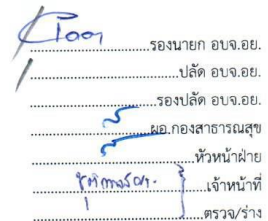 รองนายก อบจ.อย.
ปลัด อบจ.อย.
รองปลัด อบจ.อย.
ผอ.กองสาธารณสุข
หัวหน้าฝ่าย
เจ้าหน้าที่
ตรวจ/ร่าง